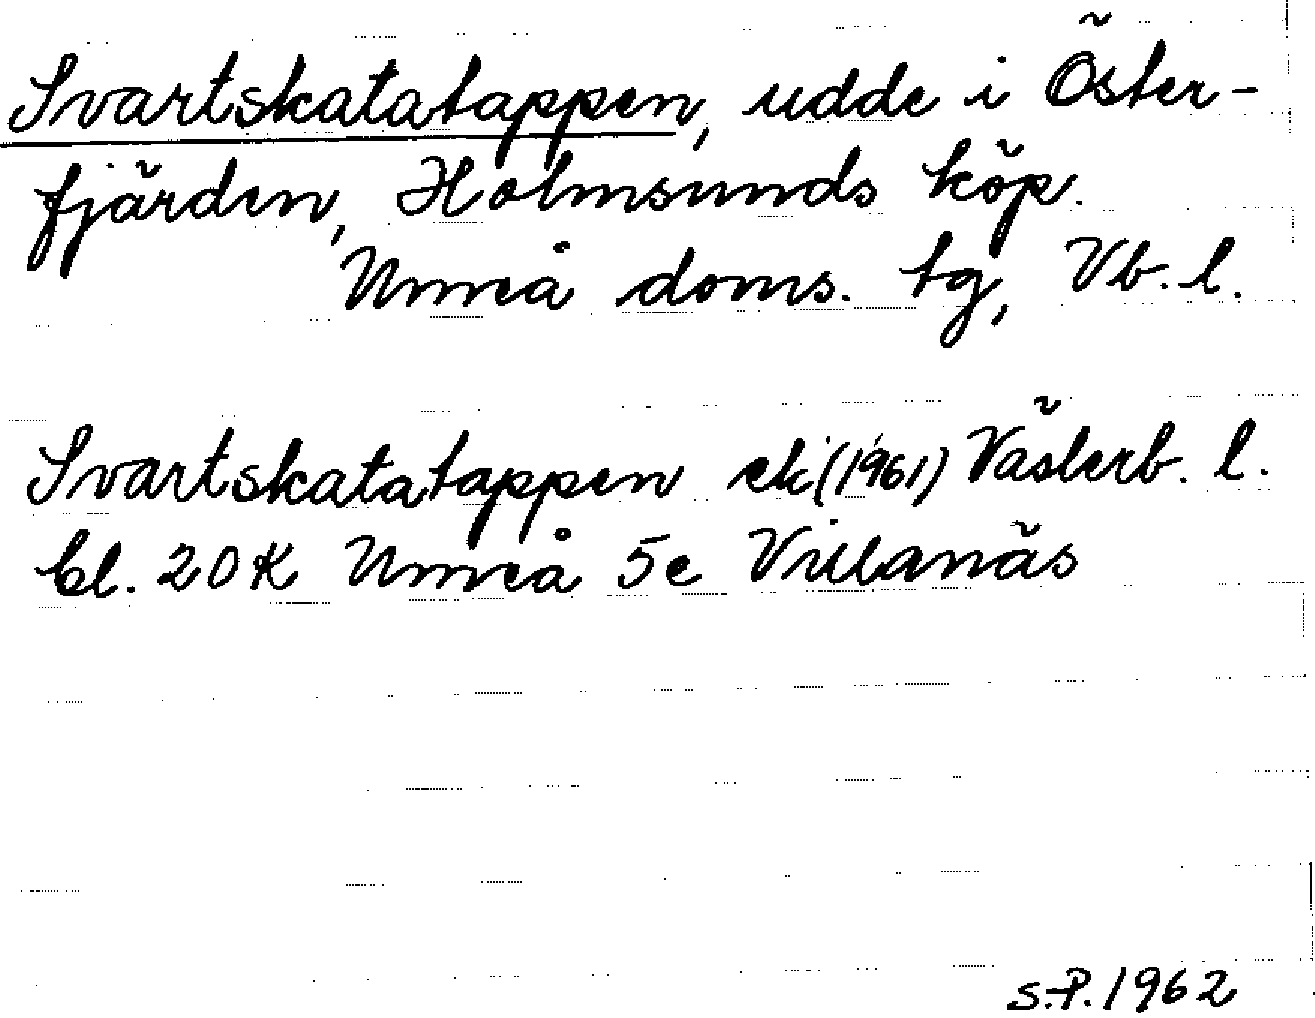 Svartskatatappen, udde i Öster-
fjärden, Holmsunds köp.
Umeå doms. tg, Vb. l.
Svartskatatappen ek (1961) Västerb. l.
bl. 20K Umeå 5e Villanäs
S.P. 1962